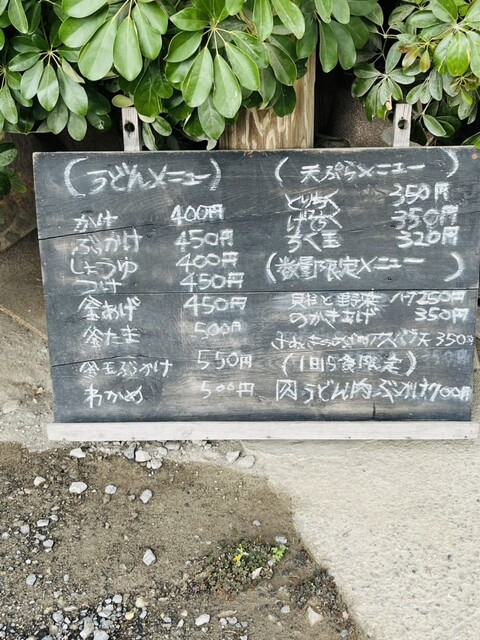 (うどんメニュー)
かけ 400円
ぶっかけ 450円
しょうゆ 400円
つけ 450円
釜あげ 450円
釜たま 500円
釜玉ぶっかけ 550円
わかめ 500円
(天ぷらメニュー)
とりちく 350円
げそちく 350円
ちく玉 320円
(数量限定メニュー)
貝柱と野菜 ハーフ250円
のかきあげ 350円
天 350円
(1日5食限定)
肉うどん肉ぶっかけ700円